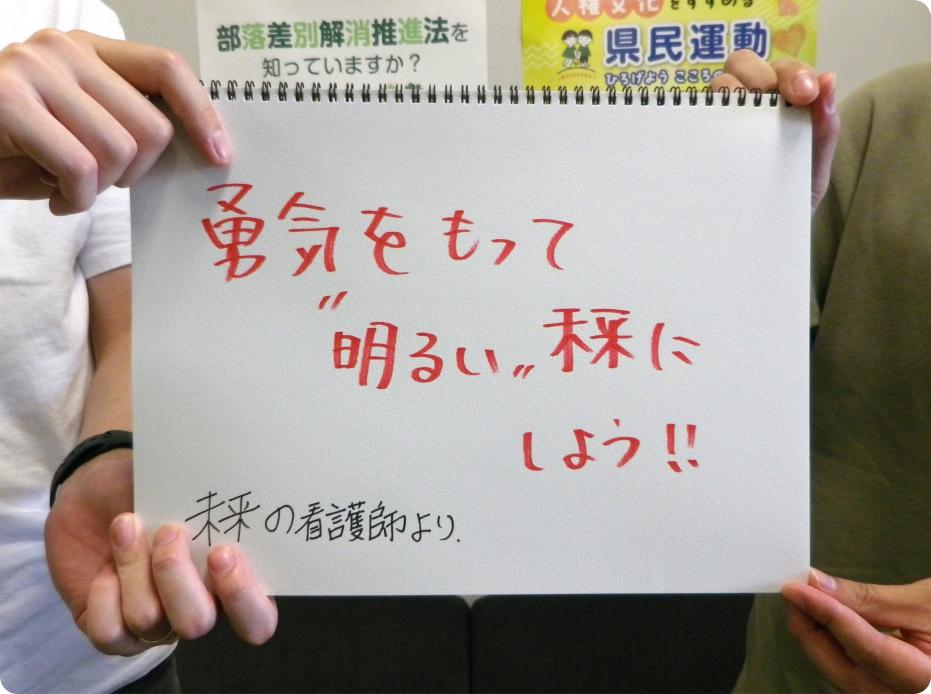 部落差別解消推進法を
知っていますか？
人権文化をすすめる
県民運動
ひろげよう こころの
勇気をもって
"明るい"未来に
しよう!!
未来の看護師より.